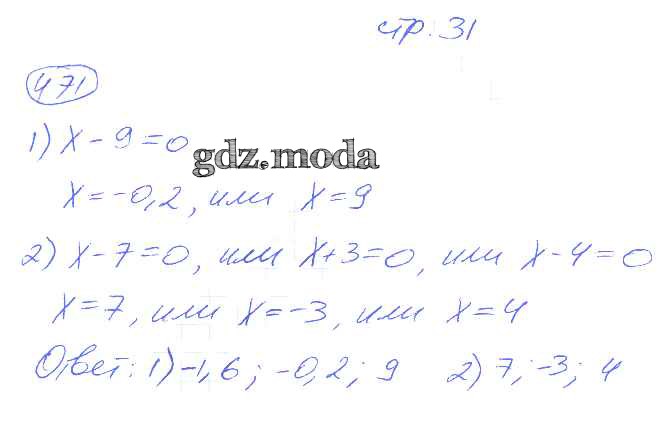 стр. 31
471
1) x - 9 = 0
gdz.moda
x = -0,2, или x = 9
2) x - 7 = 0, или x + 3 = 0, или x - 4 = 0
x = 7, или x = -3, или x = 4
Ответ: 1) -1,6; -0,2; 9 2) 7; -3; 4